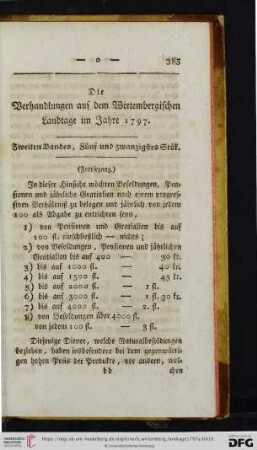 — o —
385
Die
Verhandlungen auf dem Wirtembergischen
Landtage im Jahre 1797.
Zweiten Bandes, Fünf und zwanzigstes Stük.
(Fortsezung.)
In dieser Hinsicht möchten Besoldungen, Pen-
sionen und jährliche Gratialien nach einem progres-
siven Verhältniß zu belegen und jährlich von jedem
100 als Abgabe zu entrichten seyn,
1) von Pensionen und Gratialien bis auf
100 fl. einschließlich — nichts;
2) von Besoldungen, Pensionen und jährlichen
Gratialien bis auf 400 — 30 kr.
3) bis auf 1000 fl. — 40 kr.
4) bis auf 1500 fl. — 45 kr.
5) bis auf 2000 fl. — 1 fl.
6) bis auf 3000 fl. — 1 fl. 30 kr.
7) bis auf 4000 fl. — 2 fl.
8) von Besoldungen über 4000 fl.
von jedem 100 fl. — 3 fl.
Diejenige Diener, welche Naturalbesoldungen
beziehen, haben insbesondere bei dem gegenwärti-
gen hohen Preis der Produkte, vor andern, wel-
bb
chen
UNIVERSITÄTS-
BIBLIOTHEK
HEIDELBERG
DFG